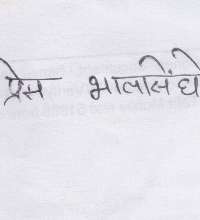 प्रेम भालसिंघे